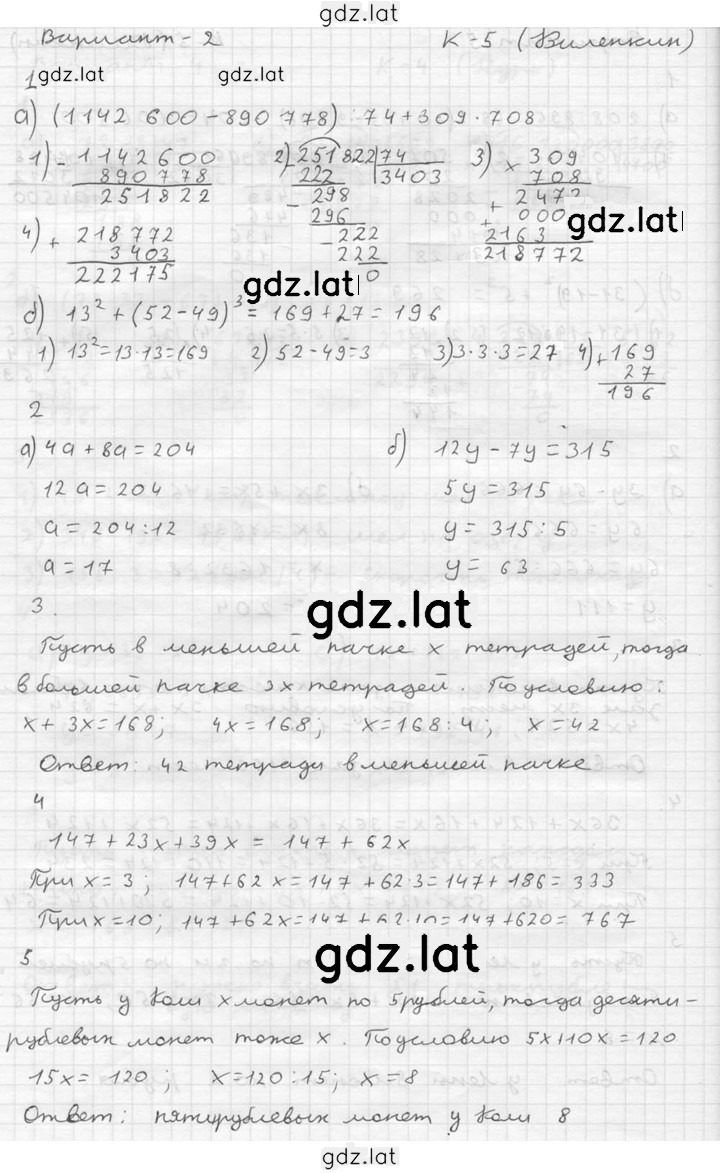 gdz.lat
Вариант - 2 К-5 (Виленкин)
gdz.lat gdz.lat
1
а) (1142 600 - 890 778) : 74 + 309 · 708
1) - 1142600 2) - 251822 | 74 3) × 309
890778 222 | 3403 708
251822 - 298 + 2472
296 + 000
4) + 218772 - 222 2163
3403 222 218772
222175 0
gdz.lat
gdz.lat
б) 13² + (52 - 49)³ = 169 + 27 = 196
1) 13² = 13 · 13 = 169 2) 52 - 49 = 3 3) 3 · 3 · 3 = 27 4) + 169
27
196
2
а) 4a + 8a = 204 б) 12y - 7y = 315
12a = 204 5y = 315
a = 204 : 12 y = 315 : 5
a = 17 y = 63
3. gdz.lat
Пусть в меньшей пачке x тетрадей, тогда
в большей пачке 3x тетрадей. По условию:
x + 3x = 168; 4x = 168; x = 168 : 4; x = 42
Ответ: 42 тетради в меньшей пачке
4
147 + 23x + 39x = 147 + 62x
При x = 3; 147 + 62x = 147 + 62·3 = 147 + 186 = 333
При x = 10; 147 + 62x = 147 + 62·10 = 147 + 620 = 767
gdz.lat
5
Пусть у Коли x монет по 5 рублей, тогда десяти-
рублевых монет тоже x. По условию 5x+10x = 120
15x = 120; x = 120 : 15; x = 8
Ответ: пятирублевых монет у Коли 8
gdz.lat